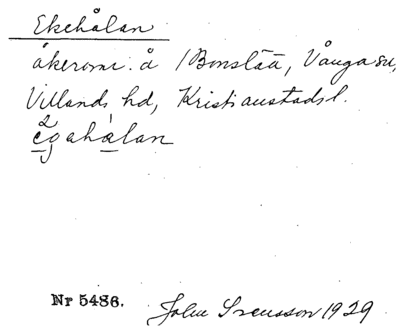 Ekehålan
åkeromr. å 1 Bonslätt, Vånga sn,
Villands hd, Kristianstads l.
ègahàlan
Nr 5486.
John Svensson 1929